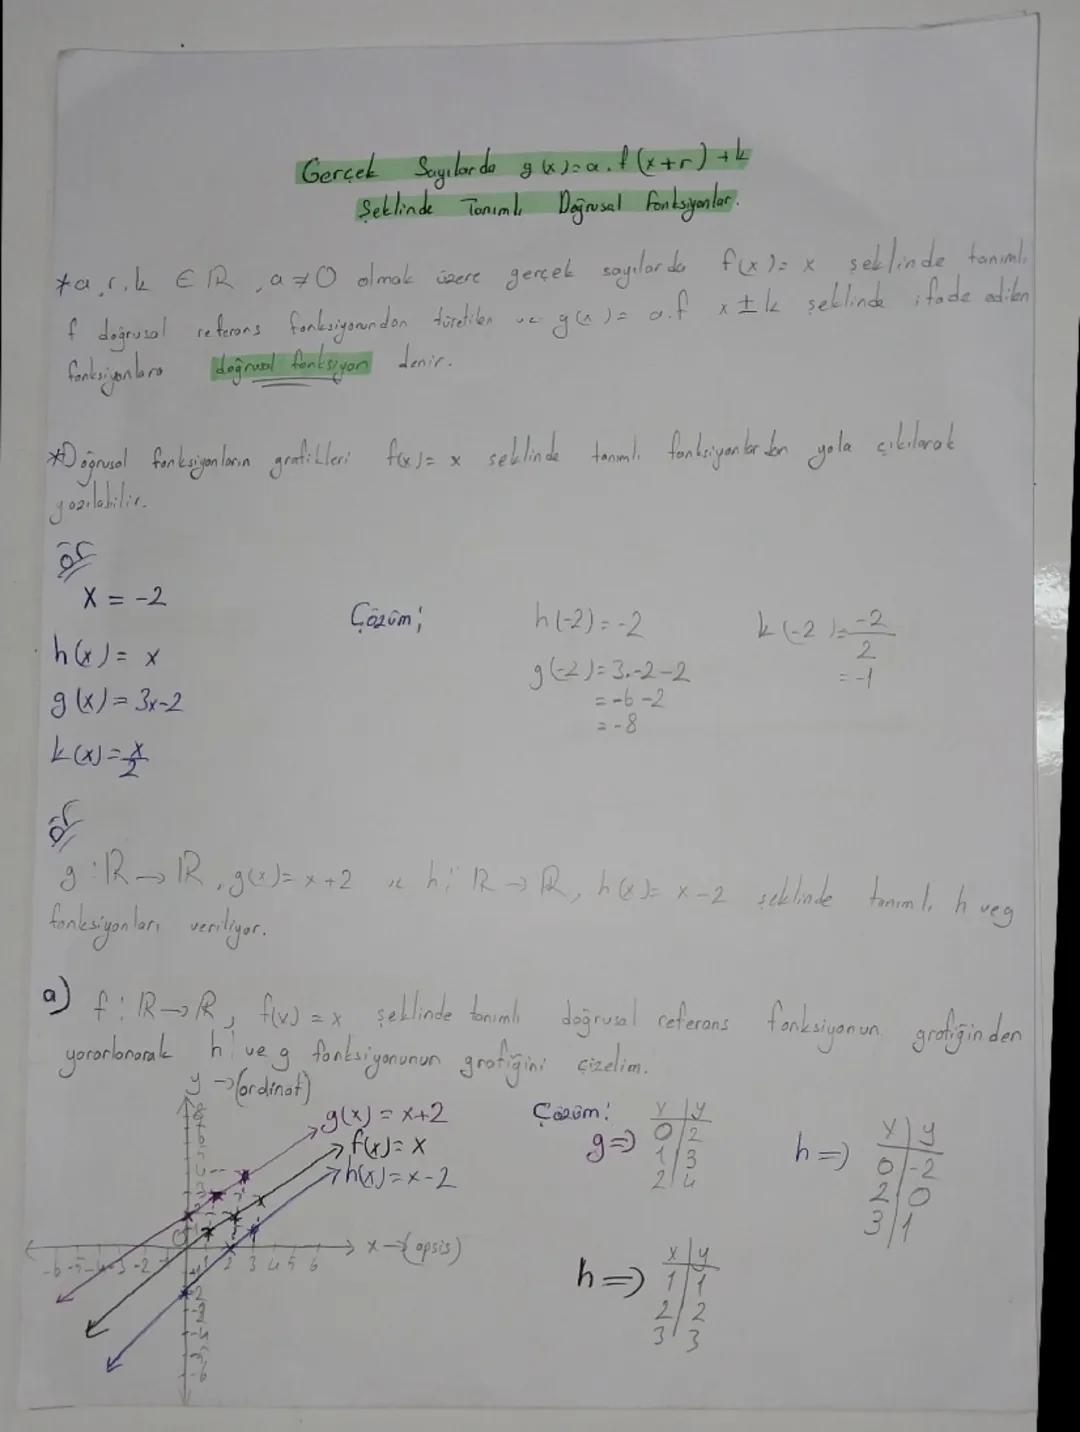 Gerçek Sayılarda g(x)=a.f(x+r)+k
Şeklinde Tanımlı Doğrusal Fonksiyonlar.
*a,r,k ∈ R, a≠0 olmak üzere gerçek sayılarda f(x)= x şeklinde tanımlı
f doğrusal referans fonksiyonundan türetilen ve g(x)= a.f x±k şeklinde ifade edilen
fonksiyonlara doğrusal fonksiyon denir.
*Doğrusal fonksiyonların grafikleri f(x)= x şeklinde tanımlı fonksiyonlardan yola çıkılarak
yazılabilir.
ör
x = -2
Çözüm;
h(-2)=-2
k(-2)=-2/2
h(x)= x
g(-2)=3.-2-2
=-1
g(x)=3x-2
=-6-2
=-8
k(x)=x/2
ör
g:R→R, g(x)= x+2 ve h: R→R, h(x)= x-2 şeklinde tanımlı h ve g
fonksiyonları veriliyor.
a) f:R→R, f(x)=x şeklinde tanımlı doğrusal referans fonksiyonun grafiğinden
yararlanarak h ve g fonksiyonunun grafiğini çizelim.
y→(ordinat)
g(x)=x+2
f(x)=x
h(x)=x-2
x→(apsis)
-6 -5 -4 -3 -2 -1 1 2 3 4 5 6
Çözüm:
g=>
x y
0 2
1 3
2 4
h=>
x y
0 -2
2 0
3 1
h=>
x y
1 1
2 2
3 3